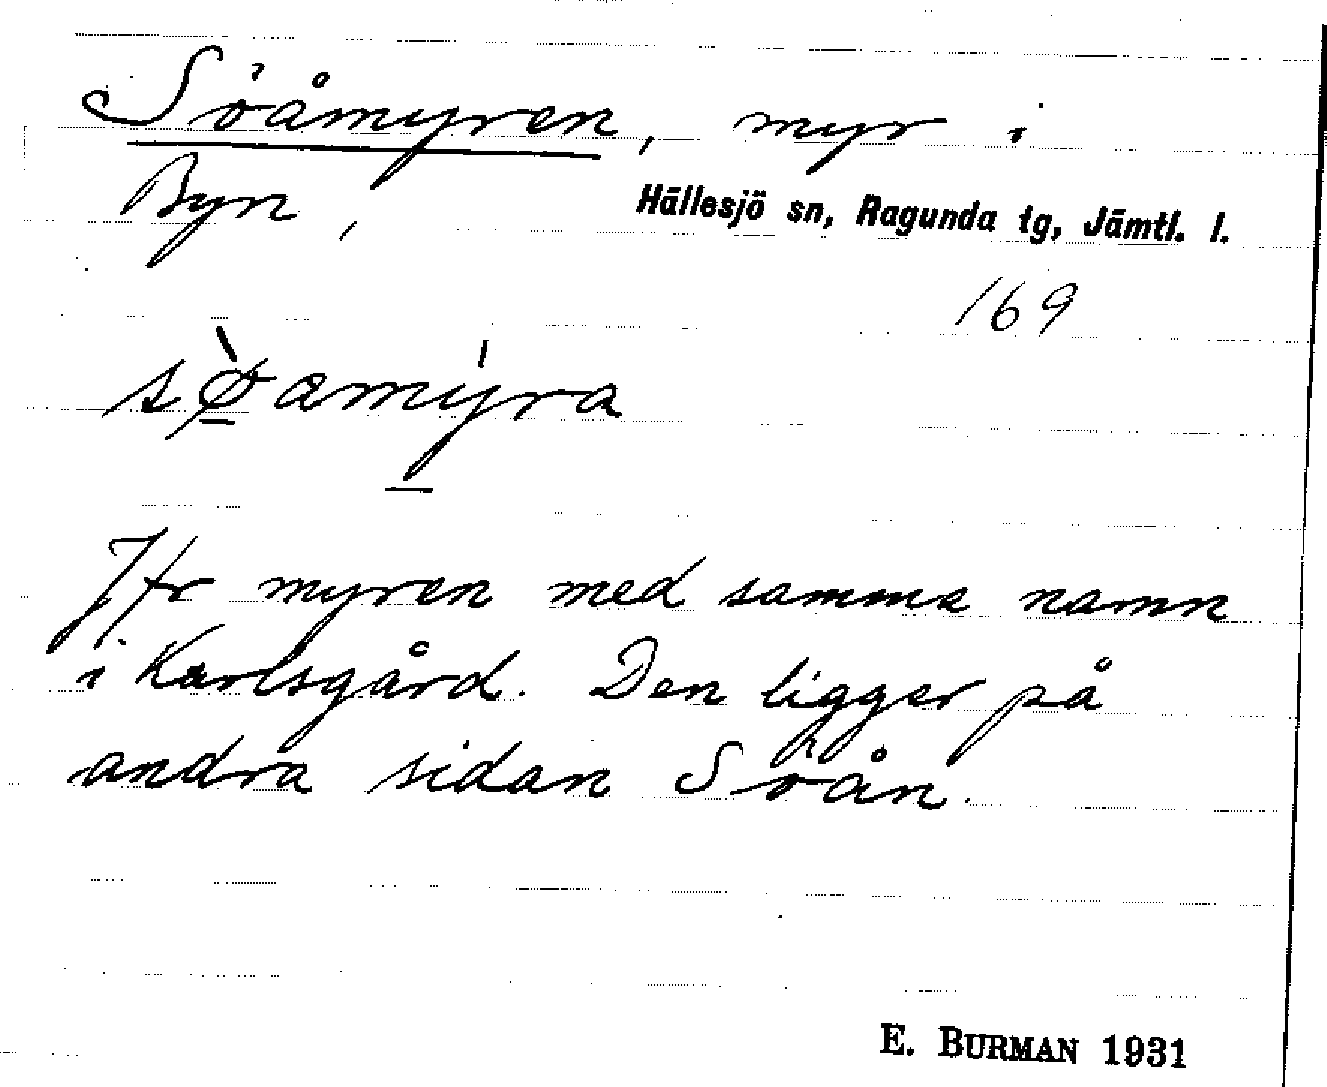 Söåmyren, myr i
Byn, Hällesjö sn, Ragunda tg, Jämtl. l.
169
sø̀amy̍ra
Jfr myren med samma namn
i Karlsgård. Den ligger på
andra sidan Söån.
E. BURMAN 1931